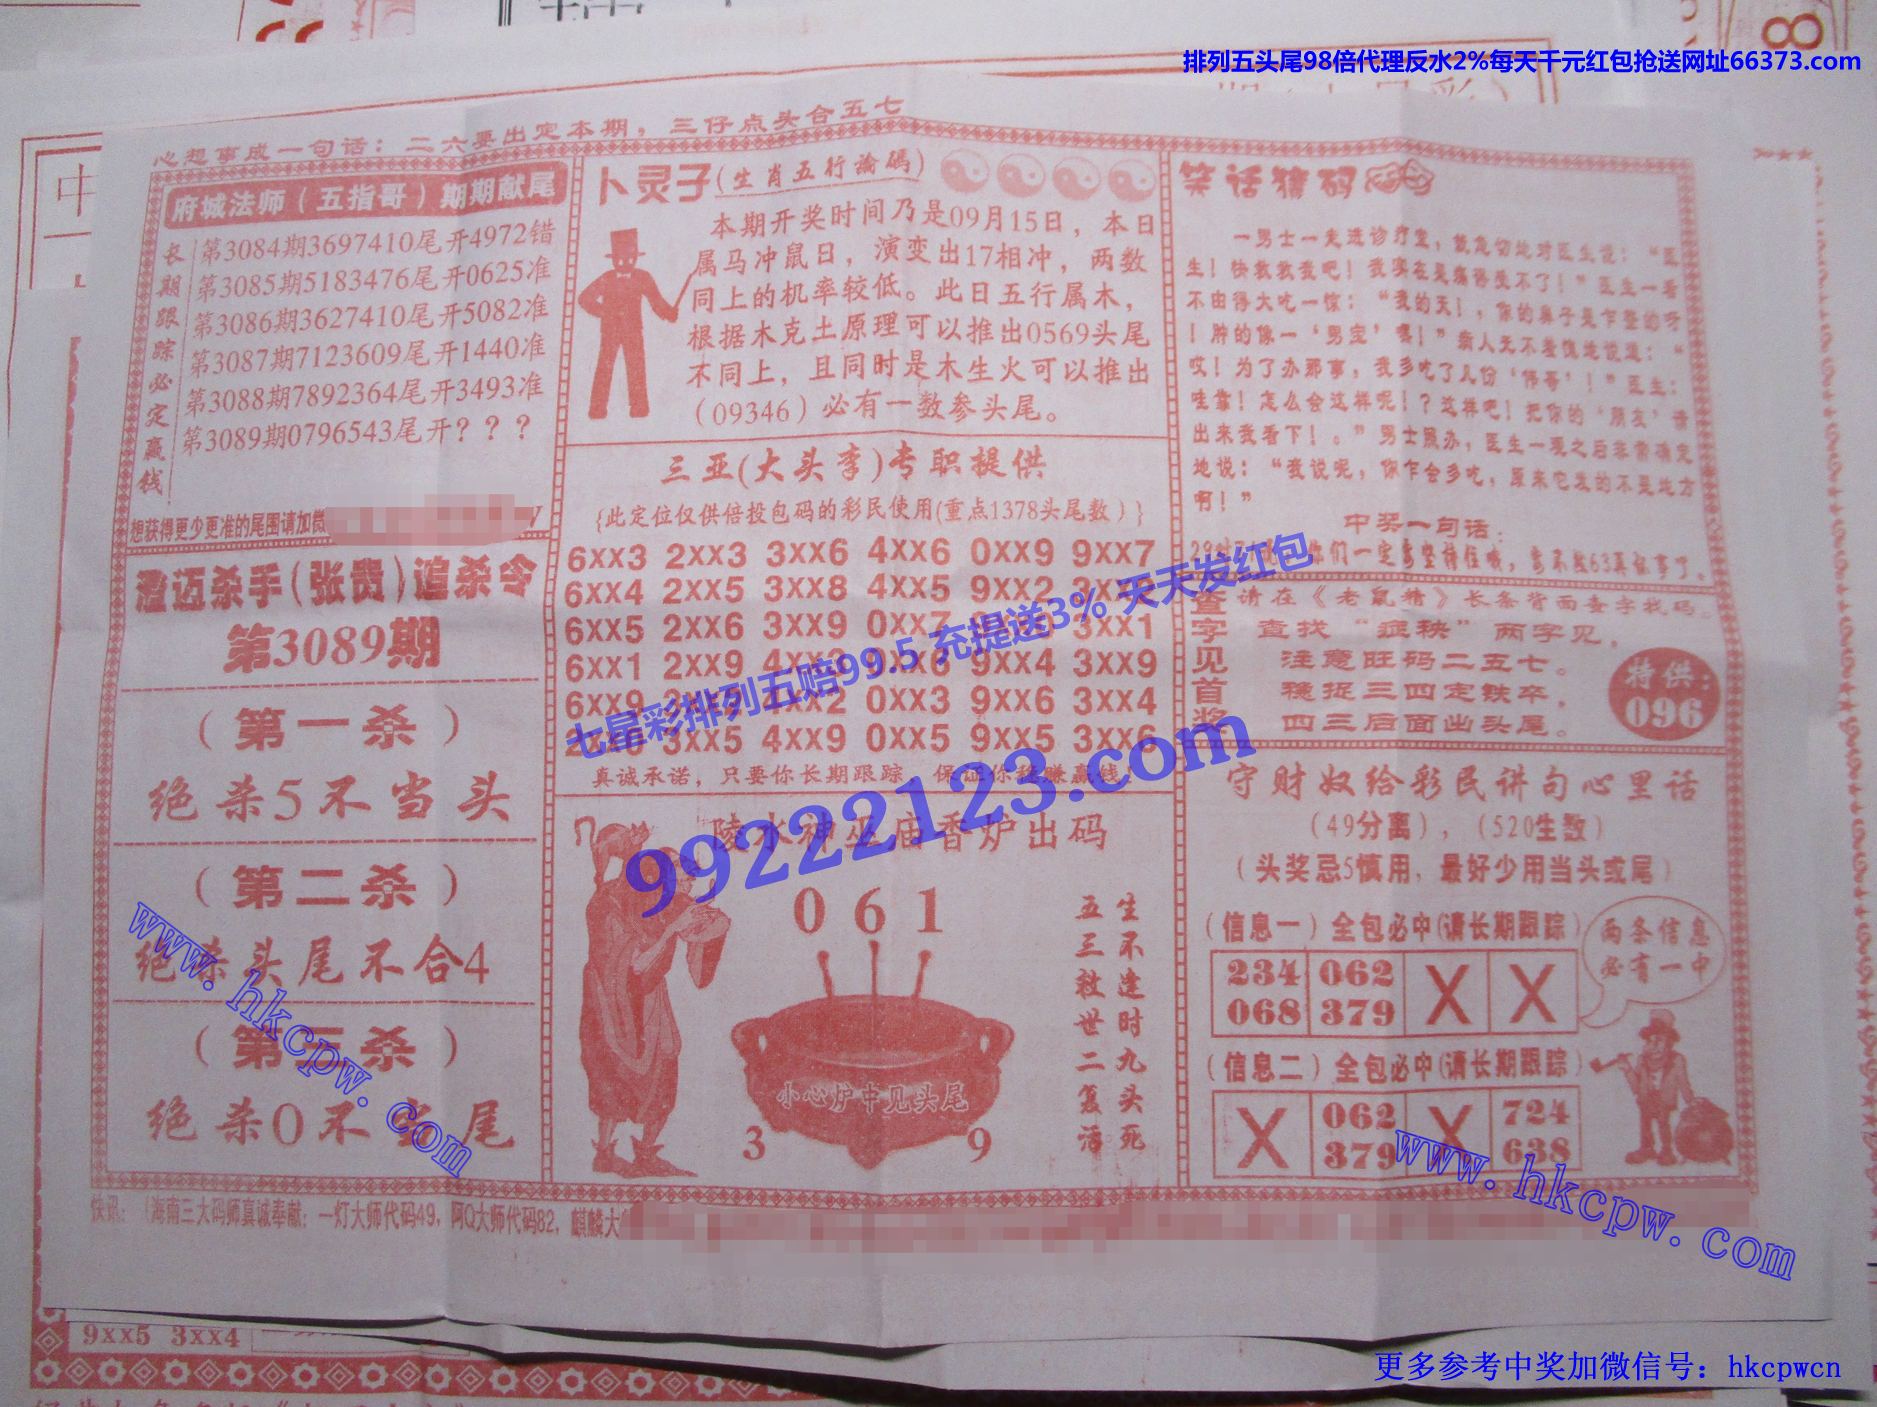 排列五头尾98倍代理反水2%每天千元红包抢送网址66373.com
心想事成一句话：二六要出定本期，三仔点头合五七
府城法师（五指哥）期期献尾
长期跟踪必定赢钱
第3084期3697410尾开4972错
第3085期5183476尾开0625准
第3086期3627410尾开5082准
第3087期7123609尾开1440准
第3088期7892364尾开3493准
第3089期0796543尾开？？？
想获得更少更准的尾围请加微
澄迈杀手（张贵）追杀令
第3089期
（第一杀）
绝杀5不当头
（第二杀）
绝杀头尾不合4
（第三杀）
绝杀0不当尾
卜灵子（生肖五行论码）
本期开奖时间乃是09月15日，本日
属马冲鼠日，演变出17相冲，两数
同上的机率较低。此日五行属木，
根据木克土原理可以推出0569头尾
不同上，且同时是木生火可以推出
（09346）必有一数参头尾。
三亚（大头李）专职提供
{此定位仅供倍投包码的彩民使用(重点1378头尾数）}
6xx3 2xx3 3xx6 4xx6 0xx9 9xx7
6xx4 2xx5 3xx8 4xx5 9xx2
6xx5 2xx6 3xx9 0xx7 3xx1
6xx1 2xx9 9xx4 3xx9
6xx9 0xx3 9xx6 3xx4
3xx5 4xx9 0xx5 9xx5 3xx6
真诚承诺，只要你长期跟踪，保证你稳赚赢钱
七星彩排列五赔99.5 充提送3% 天天发红包
99222123.com
陵水神巫庙香炉出码
0 6 1
小心炉中见头尾
3 9
生不逢时九头死
五三救世二复活
笑话猜码
一男士一走进诊疗室，就急切地对医生说：“医
生！快救救我吧！我实在是痛得受不了！”医生一看
不由得大吃一惊：“我的天！，你的鼻子是乍整的呀
！肿的像一‘男宝’嘿！”病人无不羞愧地说道：“
哎！为了办那事，我多吃了几份‘伟哥’！”医生：
哇靠！怎么会这样呢！？这样吧！把你的‘朋友’请
出来我看下！。”男士照办，医生一观之后非常确定
地说：“我说呢，你乍会多吃，原来它发的不是地方
啊！”
中奖一句话：
你们一定要坚持住哦，
查字见首奖
请在《老鼠精》长条背面查字找码。
查找“症秧”两字见，
注意旺码二五七。
稳捉三四定铁卒，
四三后面出头尾。
特供：
096
守财奴给彩民讲句心里话
（49分离），（520生数）
（头奖忌5慎用，最好少用当头或尾）
（信息一）全包必中(请长期跟踪）
234 062 X X
068 379
两条信息
必有一中
（信息二）全包必中(请长期跟踪）
X 062 X 724
379 638
www.hkcpw.com
www.hkcpw.com
快讯：（海南三大码师真诚奉献：一灯大师代码49，阿Q大师代码82，麒麟大
9xx5 3xx4
更多参考中奖加微信号：hkcpwcn